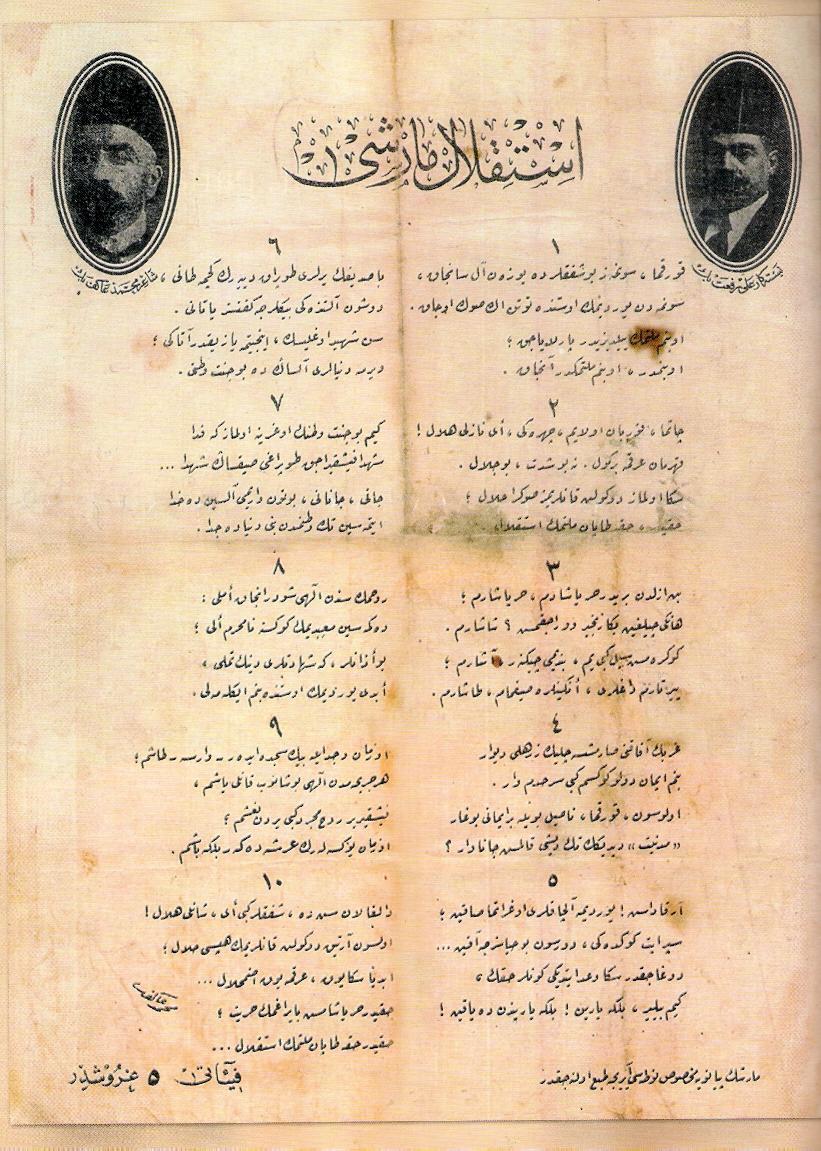 استقلال مارشی
بسته‌كار علی رفعت بك
شاعر محمد عاكف بك
١
قورقما، سونمز بو شفقلرده یوزن آل سانجاق،
سونمه‌دن یوردیمك اوستنده توتن اك صوك اوجاق.
او بنم ملتمك ییلدیزیدر پارلایاجق؛
او بنمدر، او بنم ملتمكدر آنجاق.
٢
چاتما، قوربان اولایم، چهره‌كی، ای نازلی هلال!
قهرمان عرقمه بر كول. نه بو شدت، بو جلال.
سكا اولماز دوكولن قانلریمز صوكرا حلال؛
حقیدر، حقه طاپان ملتمك استقلال.
٣
بن ازلدن بریدر حر یاشادم، حر یاشارم؛
هانكی چیلغین بكا زنجیر ووراجقمش؟ شاشارم.
كوكره‌مش سیل كبی یم، بندیمی چیكنر، آشارم؛
ییرتارم داغلری، أنكینلره صیغمام، طاشارم.
٤
غربك آفاقنی صارمشسه چلیك زرهلی دیوار
بنم ایمان دولو كوكسم كبی سرحدم وار.
اولوسون، قورقما، ناصیل بویله بر ایمانی بوغار
«مدنیت» دیدیكك تك دیشی قالمش جاناوار؟
٥
آرقاداش! یوردیمه آلچاقلری اوغراتما صاقین؛
سپر ایت كوكده‌كی، دورسون بو حیاسزجه آقین...
دوغاجقدر سكا وعد ایتدیكی كونلر حقك؛
كیم بیلیر، بلكه یارین! بلكه یاریندن ده یاقین!
٦
باصدیغك یرلری طوپراق دییه‌رك كچمه طانی،
دوشون آلتنده‌كی بیكلرجه كفنسز یاتانی.
سن شهید اوغلیسك، اینجیتمه یازیقدر آتاكی؛
ویرمه دنیالری آلساك ده بو جنت وطنی.
٧
كیم بو جنت وطنك اوغرینه اولماز كه فدا
شهدا فیشقیراجق طوپراغی صیقساك شهدا...
جانی، جانانی، بوتون واریمی آلسین ده خدا
ایتمه‌سین تك وطنمدن بنی دنیاده جدا.
٨
روحمك سندن الهی شودر آنجاق أملی:
دكمه‌سین معبدیمك كوكسنه نامحرم ألی؛
بو أذانلر، كه شهادتلری دینك تملی،
أبدی یوردیمك اوستنده بنم ایكله‌ملی.
٩
او زمان وجد ایله بیك سجده ایدر ـ وارسه ـ طاشم؛
هر جریحه‌مدن الهی بوشانوب قانلی یاشم،
فیشقیریر روح مجرد كبی یردن نعشم؛
او زمان یوكسه‌له‌رك عرشه ده‌كر بلكه باشم.
١٠
دالغالان سن ده، شفقلر كبی أی، شانلی هلال!
اولسون آرتیق دوكولن قانلریمك هپسی حلال؛
ابدیا سكا یوق، عرقمه یوق اضمحلال...
حقیدر حر یاشامش بایراغمك حریت؛
حقیدر حقه طاپان ملتمك استقلال...
محمد عاكف
مارشك پیانویه مخصوص نوطه‌سی آیریجه طبع اولنه‌جقدر
فیئاتی ٥ غروشدر